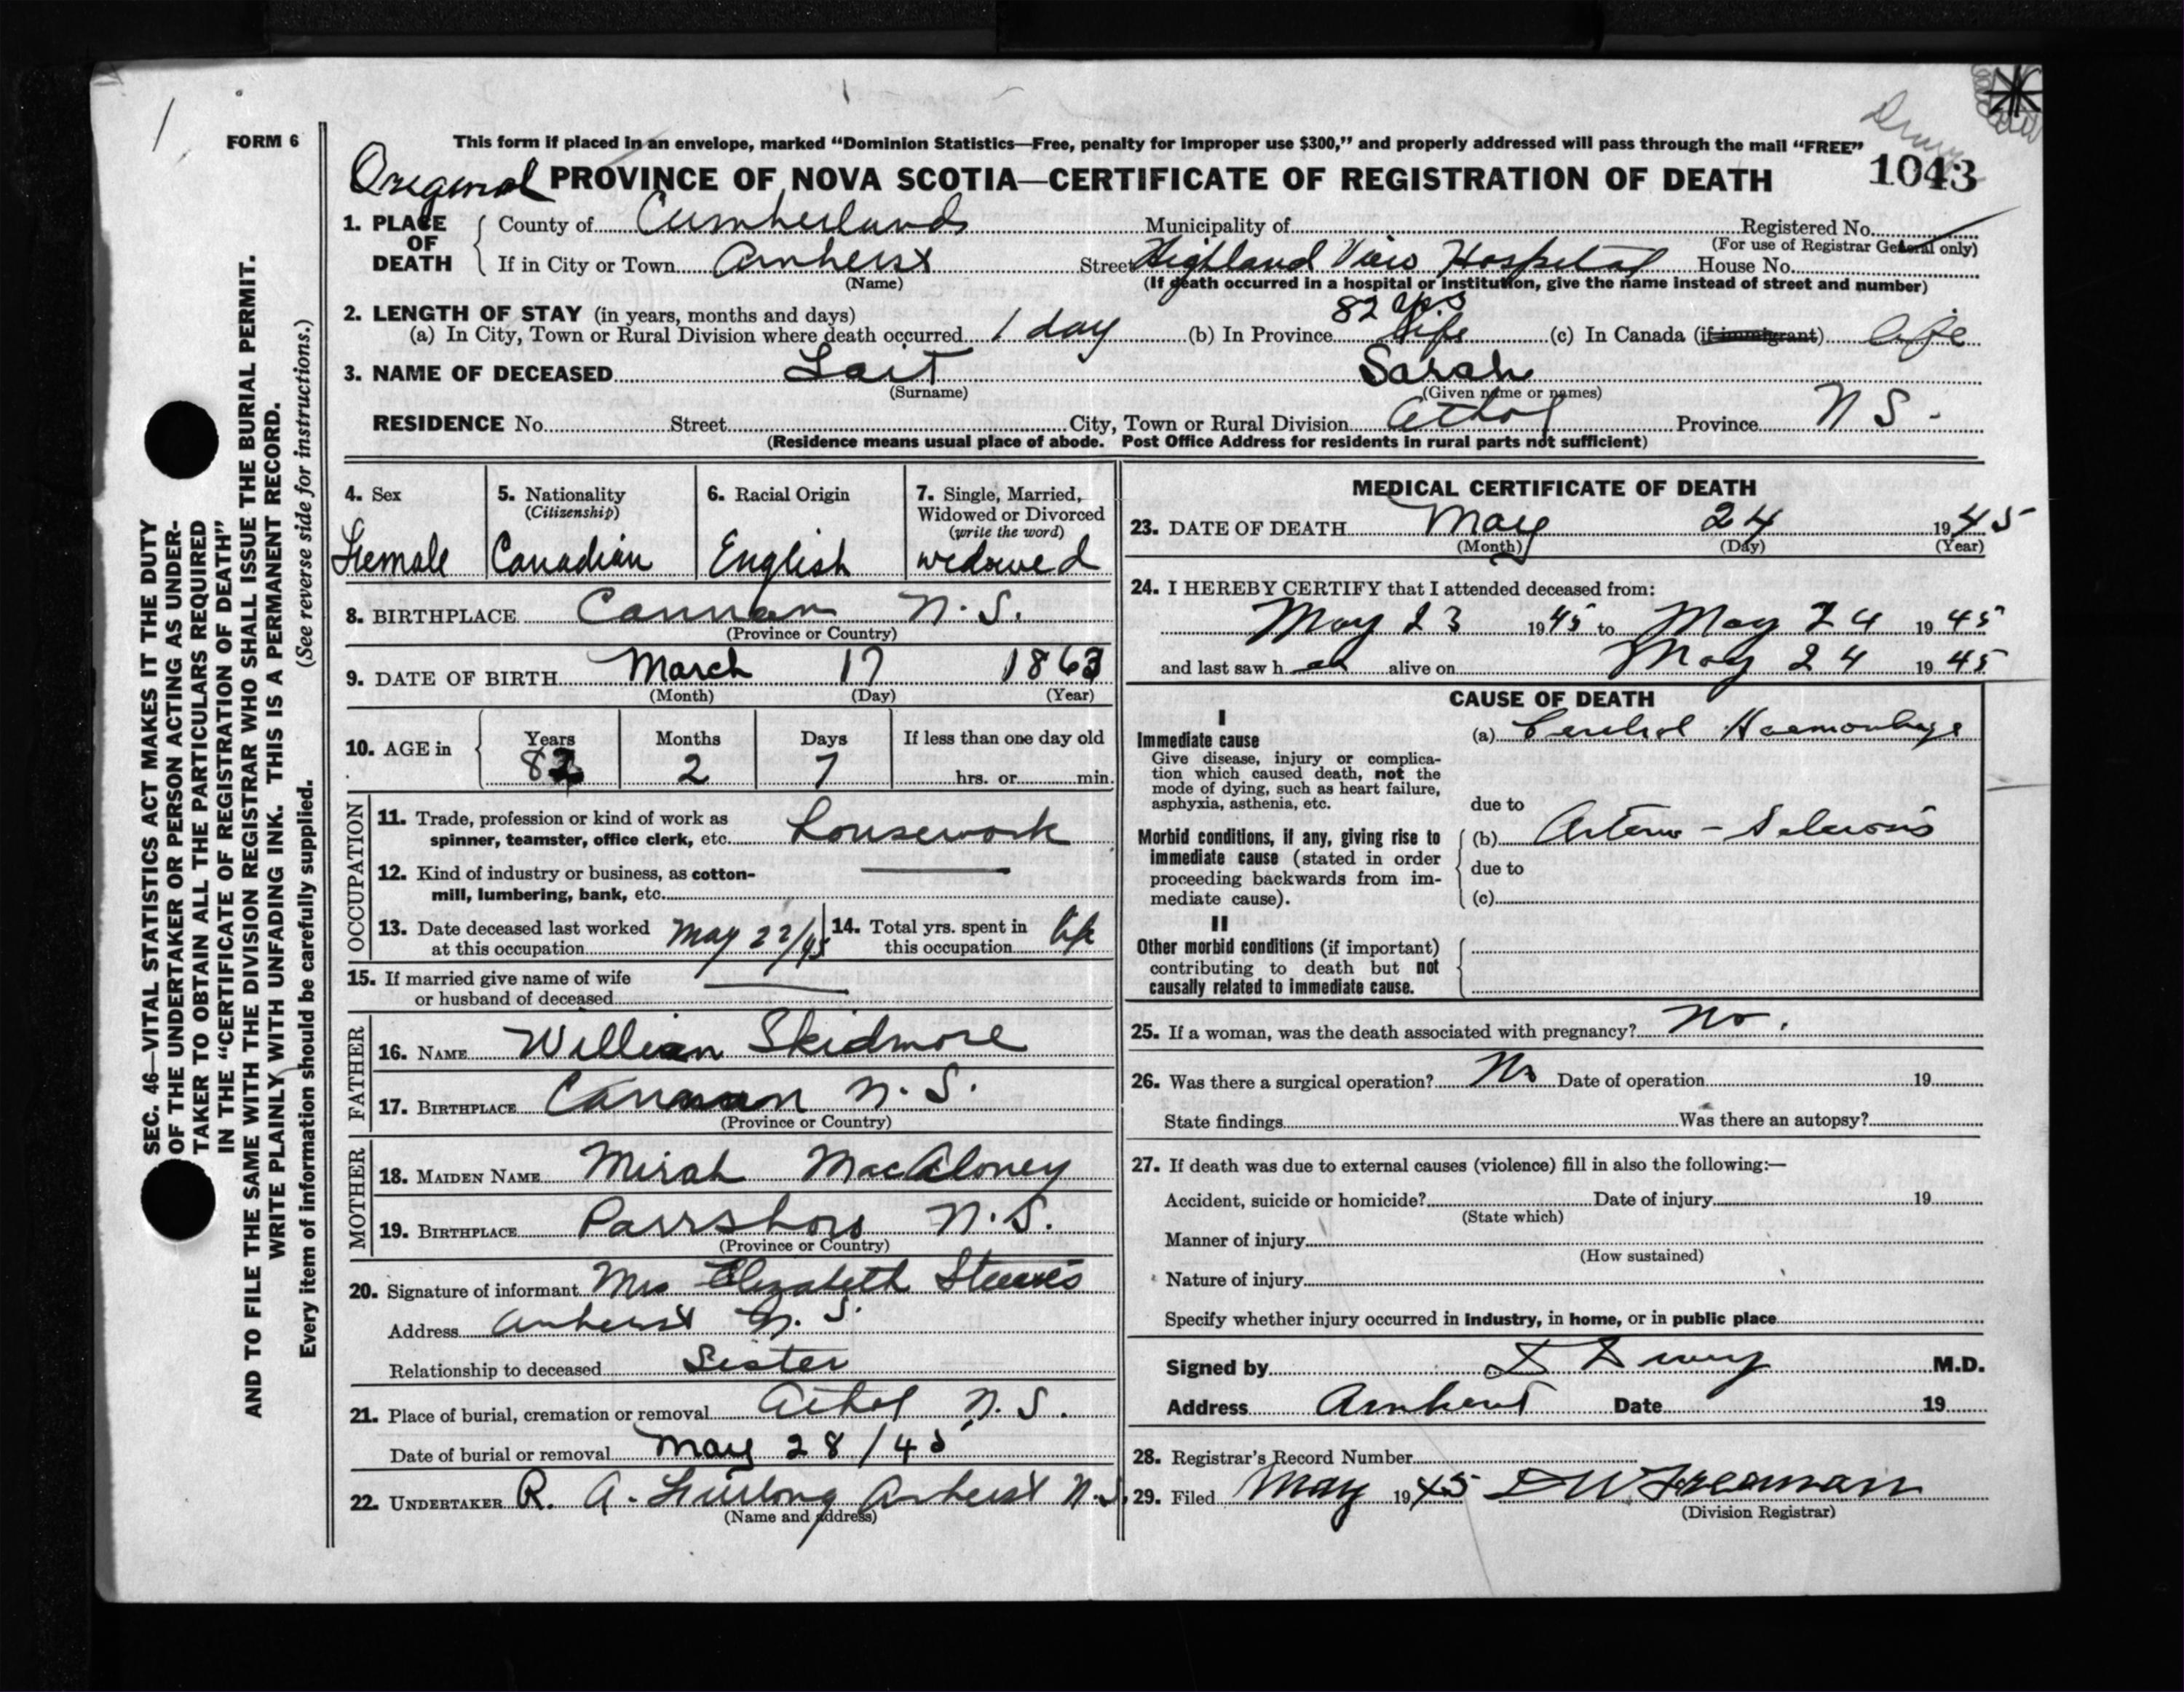 FORM 6
This form if placed in an envelope, marked “Dominion Statistics—Free, penalty for improper use $300,” and properly addressed will pass through the mail “FREE”
Original PROVINCE OF NOVA SCOTIA—CERTIFICATE OF REGISTRATION OF DEATH 1043
1. PLACE OF DEATH County of Cumberland Municipality of Registered No.
(For use of Registrar General only)
If in City or Town Amherst Street Highland View Hospital House No.
(Name) (If death occurred in a hospital or institution, give the name instead of street and number)
2. LENGTH OF STAY (in years, months and days) 82 yrs
(a) In City, Town or Rural Division where death occurred 1 day (b) In Province life (c) In Canada (if immigrant) life
3. NAME OF DECEASED Lait Sarah
(Surname) (Given name or names)
RESIDENCE No. Street City, Town or Rural Division Athol Province N S.
(Residence means usual place of abode. Post Office Address for residents in rural parts not sufficient)
4. Sex Female
5. Nationality (Citizenship) Canadian
6. Racial Origin English
7. Single, Married, Widowed or Divorced (write the word) widowed
8. BIRTHPLACE Cannan N.S.
(Province or Country)
9. DATE OF BIRTH March 17 1863
(Month) (Day) (Year)
10. AGE in Years 82 Months 2 Days 7 If less than one day old hrs. or min.
OCCUPATION
11. Trade, profession or kind of work as
spinner, teamster, office clerk, etc. housework
12. Kind of industry or business, as cotton-
mill, lumbering, bank, etc.
13. Date deceased last worked
at this occupation May 22/45
14. Total yrs. spent in
this occupation life
15. If married give name of wife
or husband of deceased
FATHER
16. NAME William Skidmore
17. BIRTHPLACE Cannan N.S.
(Province or Country)
MOTHER
18. MAIDEN NAME Mirah MacAloney
19. BIRTHPLACE Parrsboro N.S.
(Province or Country)
20. Signature of informant Mrs Elizabeth Steeves
Address Amherst N.S.
Relationship to deceased Sister
21. Place of burial, cremation or removal Athol N.S.
Date of burial or removal May 28/45
22. UNDERTAKER R. A. Furlong Amherst N.S.
(Name and address)
MEDICAL CERTIFICATE OF DEATH
23. DATE OF DEATH May 24 1945
(Month) (Day) (Year)
24. I HEREBY CERTIFY that I attended deceased from:
May 23 1945 to May 24 1945
and last saw h er alive on May 24 1945
CAUSE OF DEATH
I
Immediate cause (a) Cerebral Haemorrhage
Give disease, injury or complica-
tion which caused death, not the
mode of dying, such as heart failure,
asphyxia, asthenia, etc. due to
Morbid conditions, if any, giving rise to (b) Arterio-Sclerosis
immediate cause (stated in order
proceeding backwards from im- due to
mediate cause). (c)
II
Other morbid conditions (if important)
contributing to death but not
causally related to immediate cause.
25. If a woman, was the death associated with pregnancy? No.
26. Was there a surgical operation? No Date of operation 19
State findings Was there an autopsy?
27. If death was due to external causes (violence) fill in also the following:—
Accident, suicide or homicide? Date of injury 19
(State which)
Manner of injury
(How sustained)
Nature of injury
Specify whether injury occurred in industry, in home, or in public place
Signed by M.D.
Address Amherst Date 19
28. Registrar's Record Number
29. Filed May 1945 D W Freeman
(Division Registrar)
SEC. 46—VITAL STATISTICS ACT MAKES IT THE DUTY
OF THE UNDERTAKER OR PERSON ACTING AS UNDER-
TAKER TO OBTAIN ALL THE PARTICULARS REQUIRED
IN THE “CERTIFICATE OF REGISTRATION OF DEATH”
AND TO FILE THE SAME WITH THE DIVISION REGISTRAR WHO SHALL ISSUE THE BURIAL PERMIT.
WRITE PLAINLY WITH UNFADING INK. THIS IS A PERMANENT RECORD.
Every item of information should be carefully supplied. (See reverse side for instructions.)